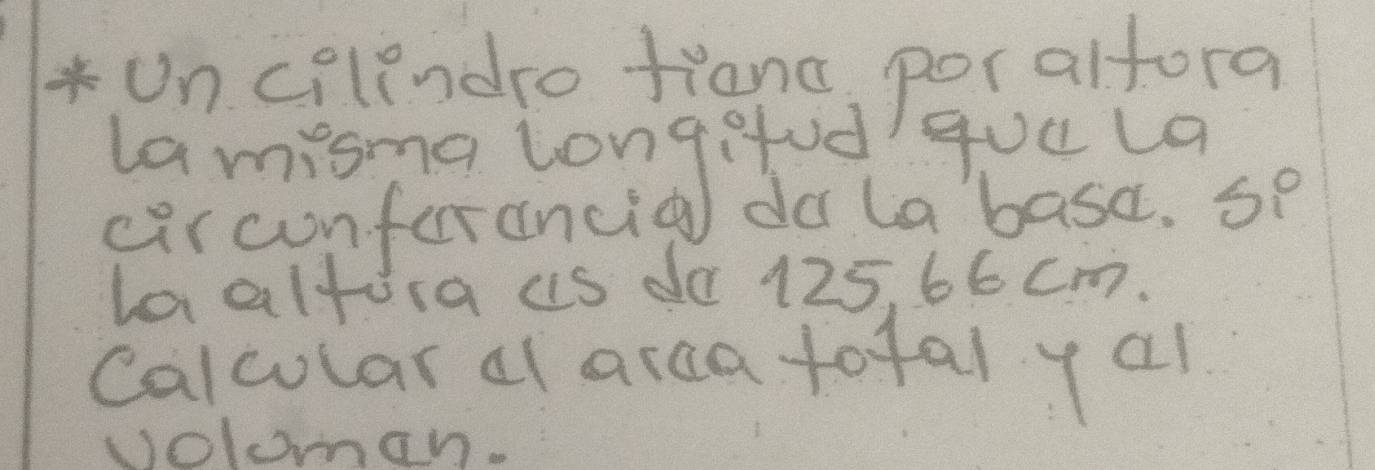 * Un cilindro tiene por altura
la misma longitud que la
circunferencia de la base. Si
la altura es de 125,66 cm.
Calcular el area total y el
volumen.